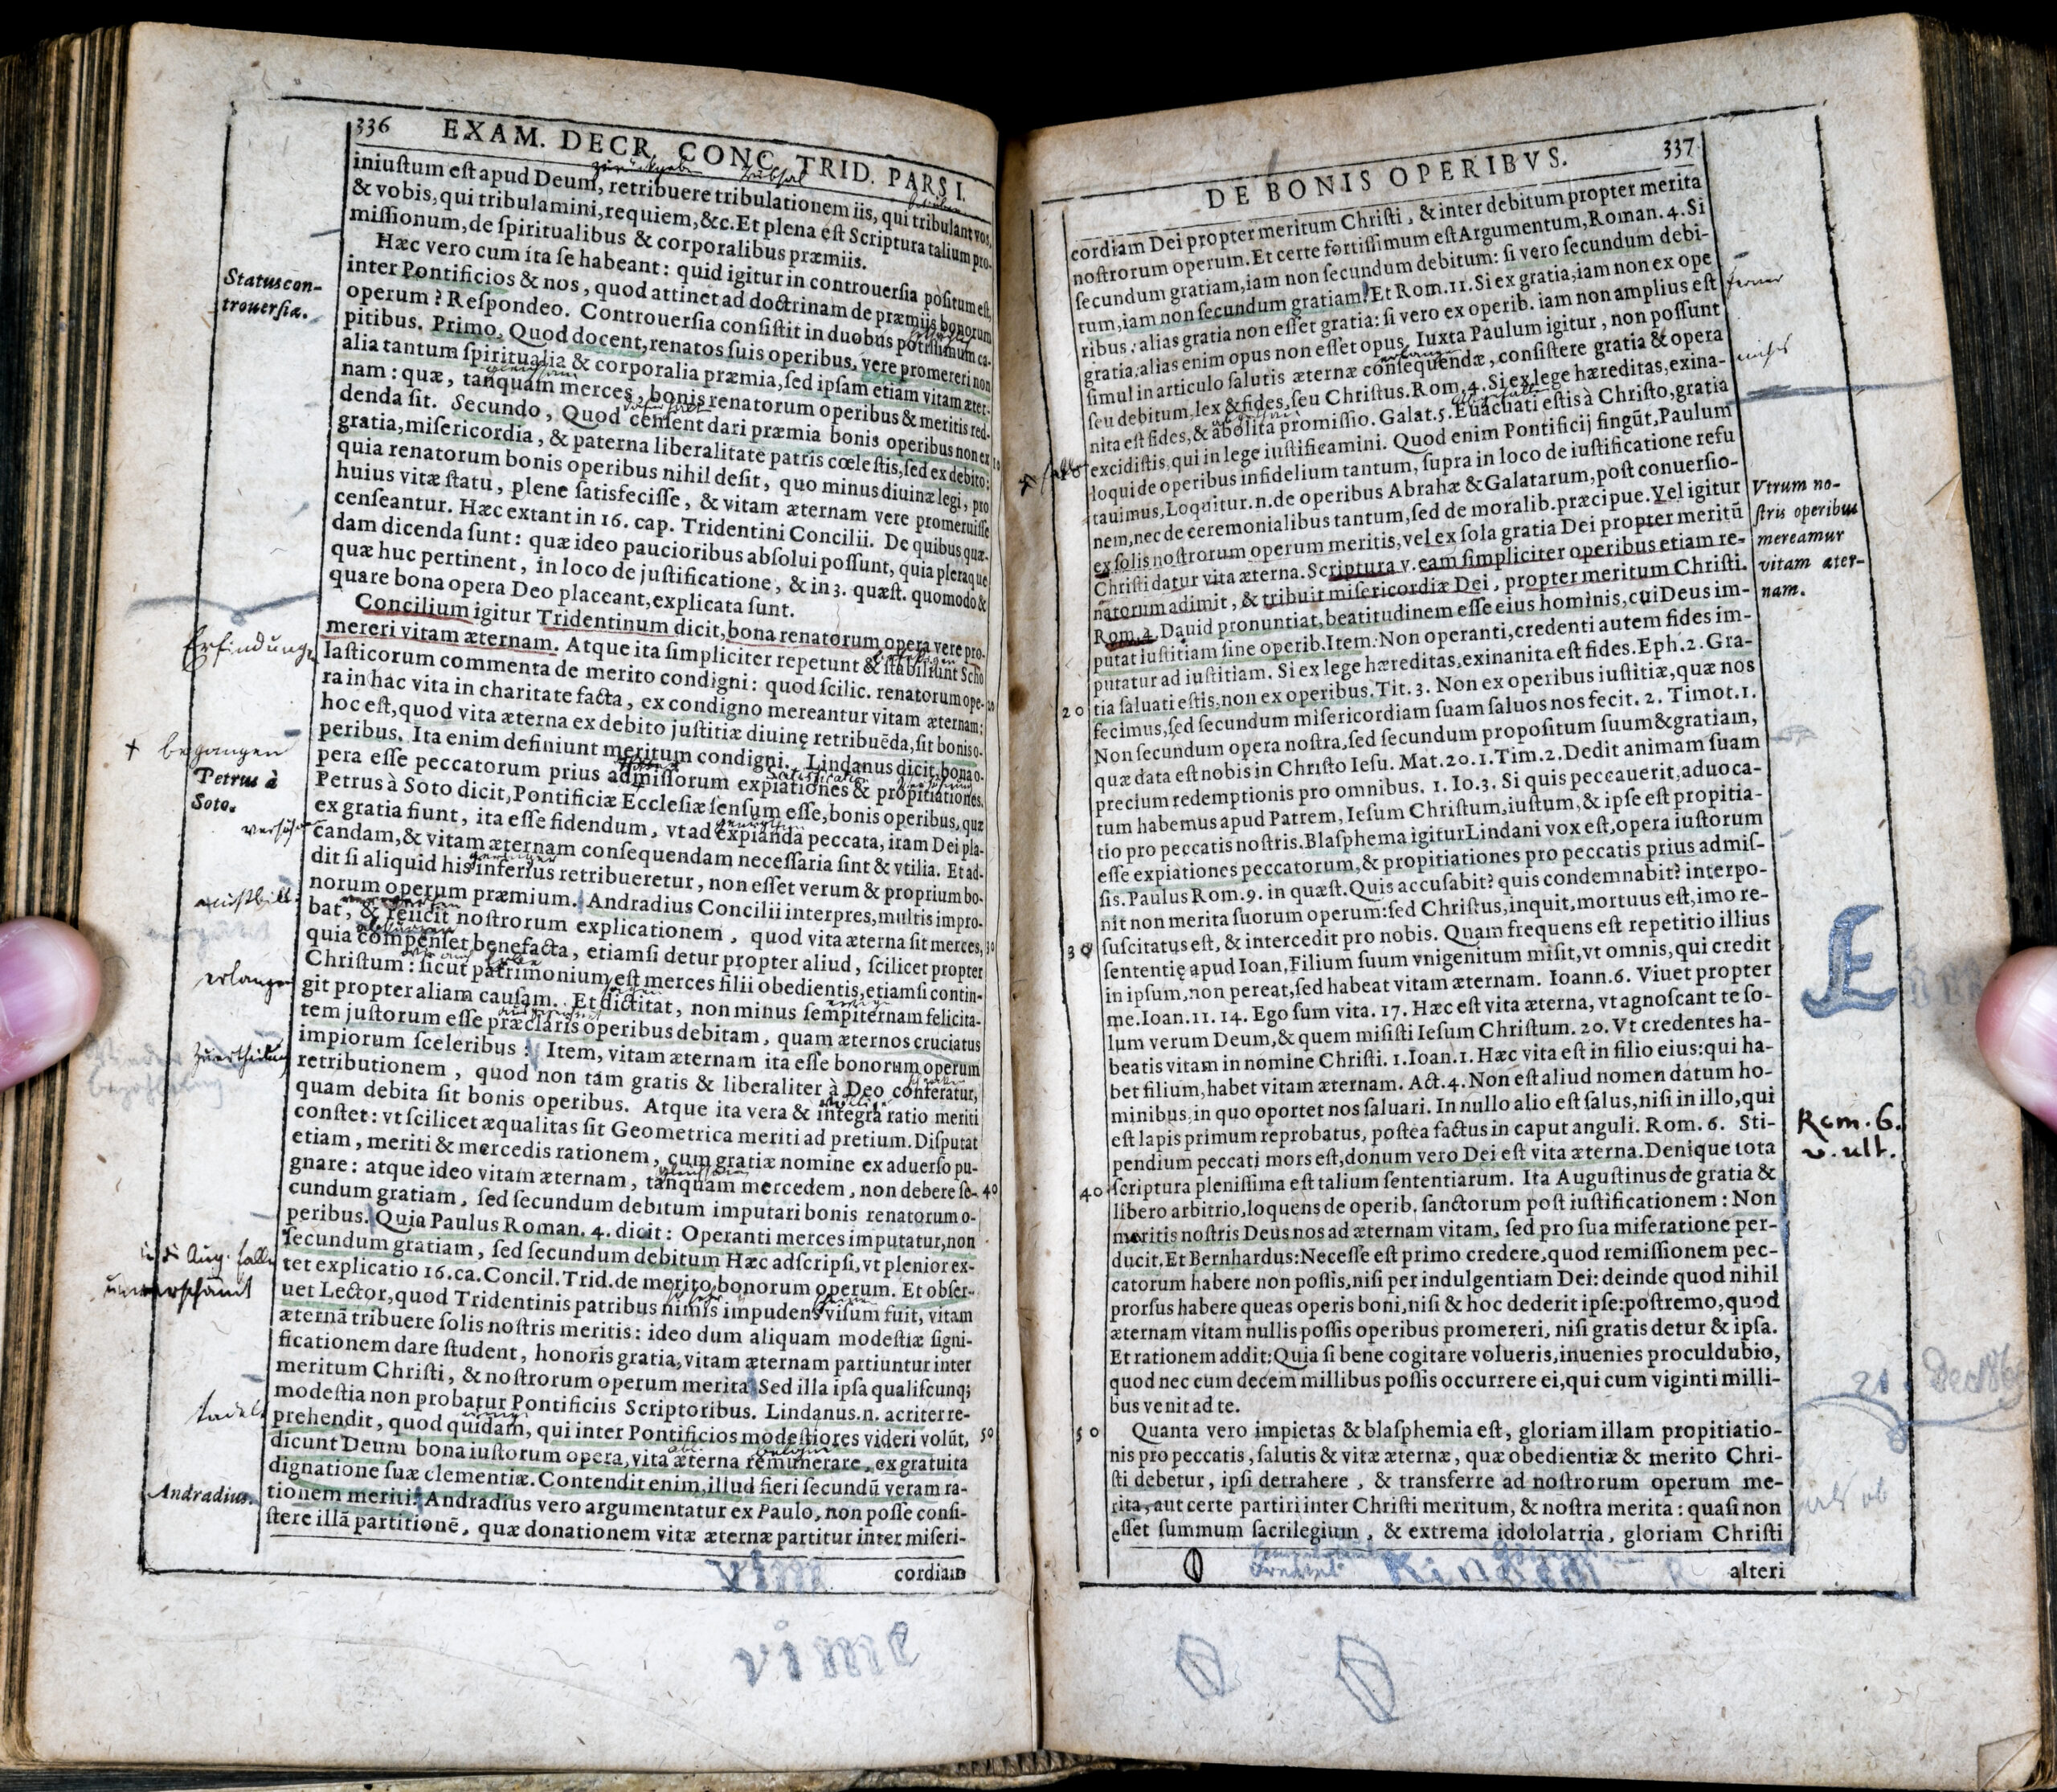 336 EXAM. DECR. CONC. TRID. PARS I.
iniuſtum eſt apud Deum, retribuere tribulationem iis, qui tribulant vos,
& vobis, qui tribulamini, requiem, &c. Et plena eſt Scriptura talium pro-
miſſionum, de ſpiritualibus & corporalibus præmiis.
Hæc vero cum íta ſe habeant: quid igitur in controuerſia poſitum eſt,
inter Pontificios & nos, quod attinet ad doctrinam de præmijs bonorum
operum? Reſpondeo. Controuerſia conſiſtit in duobus potiſſimum ca-
pitibus. Primo, Quod docent, renatos ſuis operibus, vere promereri non
alia tantum ſpiritualia & corporalia præmia, ſed ipſam etiam vitam æter-
nam: quæ, tanquam merces, bonis renatorum operibus & meritis red-
denda ſit. Secundo, Quod cenſent dari præmia bonis operibus non ex
gratia, miſericordia, & paterna liberalitate patris cœleſtis, ſed ex debito:
quia renatorum bonis operibus nihil deſit, quo minus diuinæ legi, pro
huius vitæ ſtatu, plene ſatisfeciſſe, & vitam æternam vere promeruiſſe
cenſeantur. Hæc extant in 16. cap. Tridentini Concilii. De quibus quæ-
dam dicenda ſunt: quæ ideo paucioribus abſolui poſſunt, quia pleraque
quæ huc pertinent, in loco de juſtificatione, & in 3. quæſt. quomodo &
quare bona opera Deo placeant, explicata ſunt.
Concilium igitur Tridentinum dicit, bona renatorum opera vere pro-
mereri vitam æternam. Atque ita ſimpliciter repetunt & ſtabiliunt Scho
laſticorum commenta de merito condigni: quod ſcilic. renatorum ope-
ra in hac vita in charitate facta, ex condigno mereantur vitam æternam:
hoc eſt, quod vita æterna ex debito juſtitiæ diuinę retribuēda, ſit bonis o-
peribus. Ita enim definiunt meritum condigni. Lindanus dicit, bona o-
pera eſſe peccatorum prius admiſſorum expiationes & propitiationes.
Petrus à Soto dicit, Pontificiæ Eccleſiæ ſenſum eſſe, bonis operibus, quæ
ex gratia fiunt, ita eſſe fidendum, vt ad expianda peccata, iram Dei pla-
candam, & vitam æternam conſequendam neceſſaria ſint & vtilia. Et ad-
dit ſi aliquid his inferius retribueretur, non eſſet verum & proprium bo-
norum operum præmium. Andradius Concilii interpres, multis impro-
bat, & reiicit noſtrorum explicationem, quod vita æterna ſit merces,
quia compenſet benefacta, etiamſi detur propter aliud, ſcilicet propter
Chriſtum: ſicut patrimonium eſt merces filii obedientis, etiamſi contin-
git propter aliam cauſam. Et dictitat, non minus ſempiternam felicita-
tem juſtorum eſſe præclaris operibus debitam, quam æternos cruciatus
impiorum ſceleribus: Item, vitam æternam ita eſſe bonorum operum
retributionem, quod non tam gratis & liberaliter à Deo conferatur,
quam debita ſit bonis operibus. Atque ita vera & integra ratio meriti
conſtet: vt ſcilicet æqualitas ſit Geometrica meriti ad pretium. Diſputat
etiam, meriti & mercedis rationem, cum gratiæ nomine ex aduerſo pu-
gnare: atque ideo vitam æternam, tanquam mercedem, non debere ſe-
cundum gratiam, ſed ſecundum debitum imputari bonis renatorum o-
peribus. Quia Paulus Roman. 4. dicit: Operanti merces imputatur, non
ſecundum gratiam, ſed ſecundum debitum Hæc adſcripſi, vt plenior ex-
tet explicatio 16. ca. Concil. Trid. de merito bonorum operum. Et obſer-
uet Lector, quod Tridentinis patribus nimis impudens viſum fuit, vitam
æternā tribuere ſolis noſtris meritis: ideo dum aliquam modeſtiæ ſigni-
ficationem dare ſtudent, honoris gratia, vitam æternam partiuntur inter
meritum Chriſti, & noſtrorum operum merita. Sed illa ipſa qualiſcunq;
modeſtia non probatur Pontificiis Scriptoribus. Lindanus.n. acriter re-
prehendit, quod quidam, qui inter Pontificios modeſtiores videri volūt,
dicunt Deum bona iuſtorum opera, vita æterna remunerare, ex gratuita
dignatione ſuæ clementiæ. Contendit enim, illud fieri ſecundū veram ra-
tionem meriti. Andradius vero argumentatur ex Paulo, non poſſe conſi-
ſtere illā partitionē, quæ donationem vitæ æternæ partitur inter miſeri-
cordiam
Status con-
trouerſiæ.
Erfindung
+ begangen
Petrus à
Soto.
erlangen
unverschämt
tadelt
Andradius.
10
20
30
40
50
vim
vime
DE BONIS OPERIBVS. 337
cordiam Dei propter meritum Chriſti, & inter debitum propter merita
noſtrorum operum. Et certe fortiſſimum eſt Argumentum, Roman. 4. Si
ſecundum gratiam, iam non ſecundum debitum: ſi vero ſecundum debi-
tum, iam non ſecundum gratiam. Et Rom. 11. Si ex gratia, iam non ex ope
ribus: alias gratia non eſſet gratia: ſi vero ex operib. iam non amplius eſt
gratia: alias enim opus non eſſet opus. Iuxta Paulum igitur, non poſſunt
ſimul in articulo ſalutis æternæ conſequendæ, conſiſtere gratia & opera
ſeu debitum, lex & fides, ſeu Chriſtus. Rom. 4. Si ex lege hæreditas, exina-
nita eſt fides, & abolita promiſſio. Galat. 5. Euacuati eſtis à Chriſto, gratia
excidiſtis, qui in lege iuſtificamini. Quod enim Pontificij fingūt, Paulum
loqui de operibus infidelium tantum, ſupra in loco de iuſtificatione refu
tauimus. Loquitur.n. de operibus Abrahæ & Galatarum, poſt conuerſio-
nem, nec de ceremonialibus tantum, ſed de moralib. præcipue. Vel igitur
ex ſolis noſtrorum operum meritis, vel ex ſola gratia Dei propter meritū
Chriſti datur vita æterna. Scriptura v. eam ſimpliciter operibus etiam re-
natorum adimit, & tribuit miſericordiæ Dei, propter meritum Chriſti.
Rom. 4. Dauid pronuntiat, beatitudinem eſſe eius hominis, cui Deus im-
putat iuſtitiam ſine operib. Item: Non operanti, credenti autem fides im-
putatur ad iuſtitiam. Si ex lege hæreditas, exinanita eſt fides. Eph. 2. Gra-
tia ſaluati eſtis, non ex operibus. Tit. 3. Non ex operibus iuſtitiæ, quæ nos
fecimus, ſed ſecundum miſericordiam ſuam ſaluos nos fecit. 2. Timot. 1.
Non ſecundum opera noſtra, ſed ſecundum propoſitum ſuum & gratiam,
quæ data eſt nobis in Chriſto Ieſu. Mat. 20. 1. Tim. 2. Dedit animam ſuam
precium redemptionis pro omnibus. 1. Io. 3. Si quis peccauerit, aduoca-
tum habemus apud Patrem, Ieſum Chriſtum, iuſtum, & ipſe eſt propitia-
tio pro peccatis noſtris. Blaſphema igitur Lindani vox eſt, opera iuſtorum
eſſe expiationes peccatorum, & propitiationes pro peccatis prius admiſ-
ſis. Paulus Rom. 9. in quæſt. Quis accuſabit? quis condemnabit? interpo-
nit non merita ſuorum operum: ſed Chriſtus, inquit, mortuus eſt, imo re-
ſuſcitatus eſt, & intercedit pro nobis. Quam frequens eſt repetitio illius
ſententię apud Ioan, Filium ſuum vnigenitum miſit, vt omnis, qui credit
in ipſum, non pereat, ſed habeat vitam æternam. Ioann. 6. Viuet propter
me. Ioan. 11. 14. Ego ſum vita. 17. Hæc eſt vita æterna, vt agnoſcant te ſo-
lum verum Deum, & quem miſiſti Ieſum Chriſtum. 20. Vt credentes ha-
beatis vitam in nomine Chriſti. 1. Ioan. 1. Hæc vita eſt in filio eius: qui ha-
bet filium, habet vitam æternam. Act. 4. Non eſt aliud nomen datum ho-
minibus, in quo oportet nos ſaluari. In nullo alio eſt ſalus, niſi in illo, qui
eſt lapis primum reprobatus, poſtea factus in caput anguli. Rom. 6. Sti-
pendium peccati mors eſt, donum vero Dei eſt vita æterna. Denique tota
ſcriptura pleniſſima eſt talium ſententiarum. Ita Auguſtinus de gratia &
libero arbitrio, loquens de operib. ſanctorum poſt iuſtificationem: Non
meritis noſtris Deus nos ad æternam vitam, ſed pro ſua miſeratione per-
ducit. Et Bernhardus: Neceſſe eſt primo credere, quod remiſſionem pec-
catorum habere non poſſis, niſi per indulgentiam Dei: deinde quod nihil
prorſus habere queas operis boni, niſi & hoc dederit ipſe: poſtremo, quod
æternam vitam nullis poſſis operibus promereri, niſi gratis detur & ipſa.
Et rationem addit: Quia ſi bene cogitare volueris, inuenies proculdubio,
quod nec cum decem millibus poſſis occurrere ei, qui cum viginti milli-
bus venit ad te.
Quanta vero impietas & blaſphemia eſt, gloriam illam propitiatio-
nis pro peccatis, ſalutis & vitæ æternæ, quæ obedientiæ & merito Chri-
ſti debetur, ipſi detrahere, & transferre ad noſtrorum operum me-
rita, aut certe partiri inter Chriſti meritum, & noſtra merita: quaſi non
eſſet ſummum ſacrilegium, & extrema idololatria, gloriam Chriſti
alteri
ferner
Vtrum no-
ſtris operibus
mereamur
vitam æter-
nam.
E
Rom. 6.
v. ult.
20
30
40
50